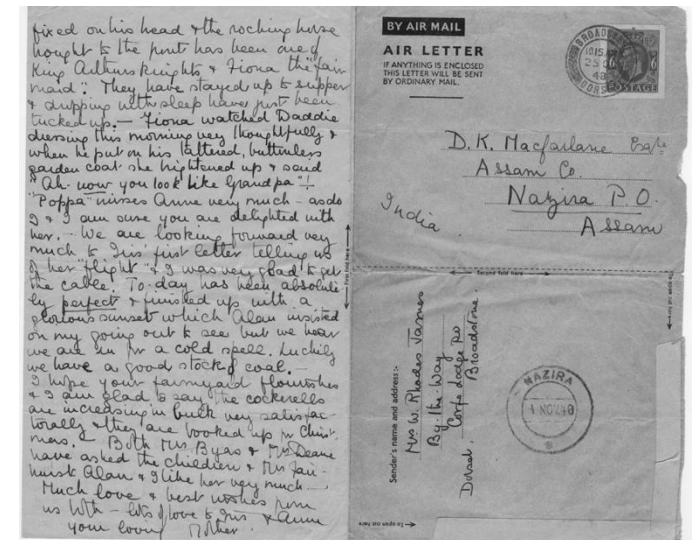 fixed on his head & the rocking horse
bought to the front has been one of
King Arthurs knights & Fiona the "fair
maid". They have stayed up to supper
& dropping with sleep have just been
tucked up. — Fiona watched Daddie
dressing this morning very thoughtfully &
when he put on his tattered, buttonless
garden coat she brightened up & said
"Ah. now you look like Grandpa"!
"Poppa" misses Anne very much – as do
I & I am sure you are delighted with
her. – We are looking forward very
much to Iris' first letter telling us
of her "flight" & I was very glad to get
the cable. To-day has been absolute-
ly perfect & finished up with a
glorious sunset which Alan insisted
on my going out to see but we hear
we are in for a cold spell. Luckily
we have a good stock of coal. –
I hope your farmyard flourishes
& I am glad to say the cockerells
are increasing in bulk very satisfac-
torally & they are booked up for Christ-
mas. Both Mrs Byas & Mrs Deane
have asked the children & Mrs
Alan & I like her very much –
Much love & best wishes from
us both – lots of love to Iris & Anne
your loving Mother.
BY AIR MAIL
AIR LETTER
IF ANYTHING IS ENCLOSED
THIS LETTER WILL BE SENT
BY ORDINARY MAIL.
BROADSTONE
10.15 AM
25 OC
48
DORSET
POSTAGE
D. K. Macfarlane Esqre
Assam Co.
Nazira P.O.
Assam
India
First fold here
Second fold here
Sender's name and address:-
Mrs W. Rhodes James
By-the-Way
Corfe Lodge Rd
Broadstone.
Dorset.
NAZIRA
1 NOV 48
To open cut here